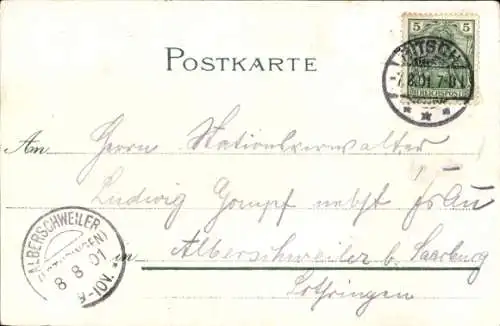 5 5
BITSCH
7.8.01. 7-8N.
REICHSPOST
POSTKARTE
An Herrn Stationsverwalter
Ludwig Gompf nebst Frau
in Alberschweiler b. Saarburg
Lothringen
ALBERSCHWEILER
(LOTHRINGEN)
8 8 01
9-10V.